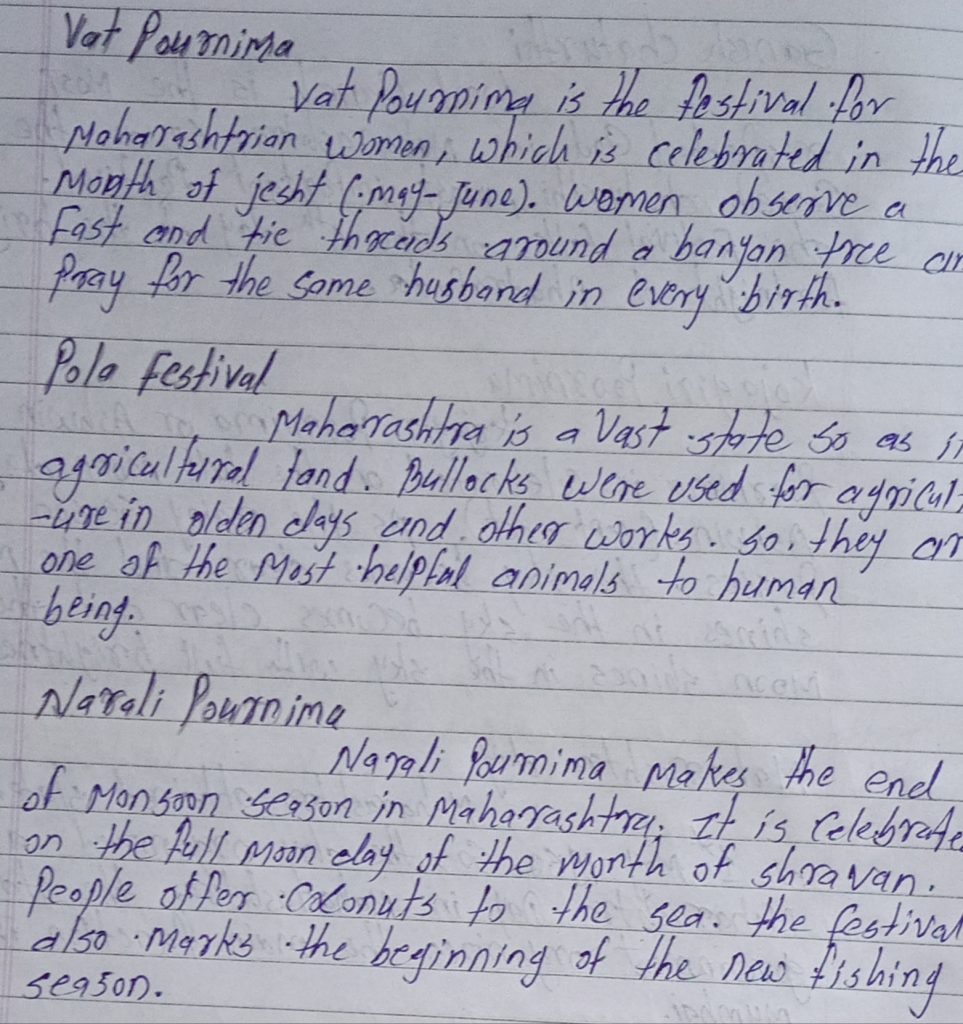 Vat Pournima
Vat Pournima is the festival for
Maharashtrian Women, which is celebrated in the
Month of jesht (may-June). Women observe a
Fast and tie threads around a banyan tree an
Pray for the same husband in every birth.
Pola Festival
Maharashtra is a Vast state so as it
agricultural land. Bullocks were used for agricul-
-ure in olden days and other works. So, they ar
one of the Most helpful animals to human
being.
Narali Pournima
Narali Pournima Makes the end
of Monsoon season in Maharashtra. It is Celebrate
on the full Moon day of the Month of shravan.
People offer Coconuts to the sea. the festival
also Marks the beginning of the new fishing
season.